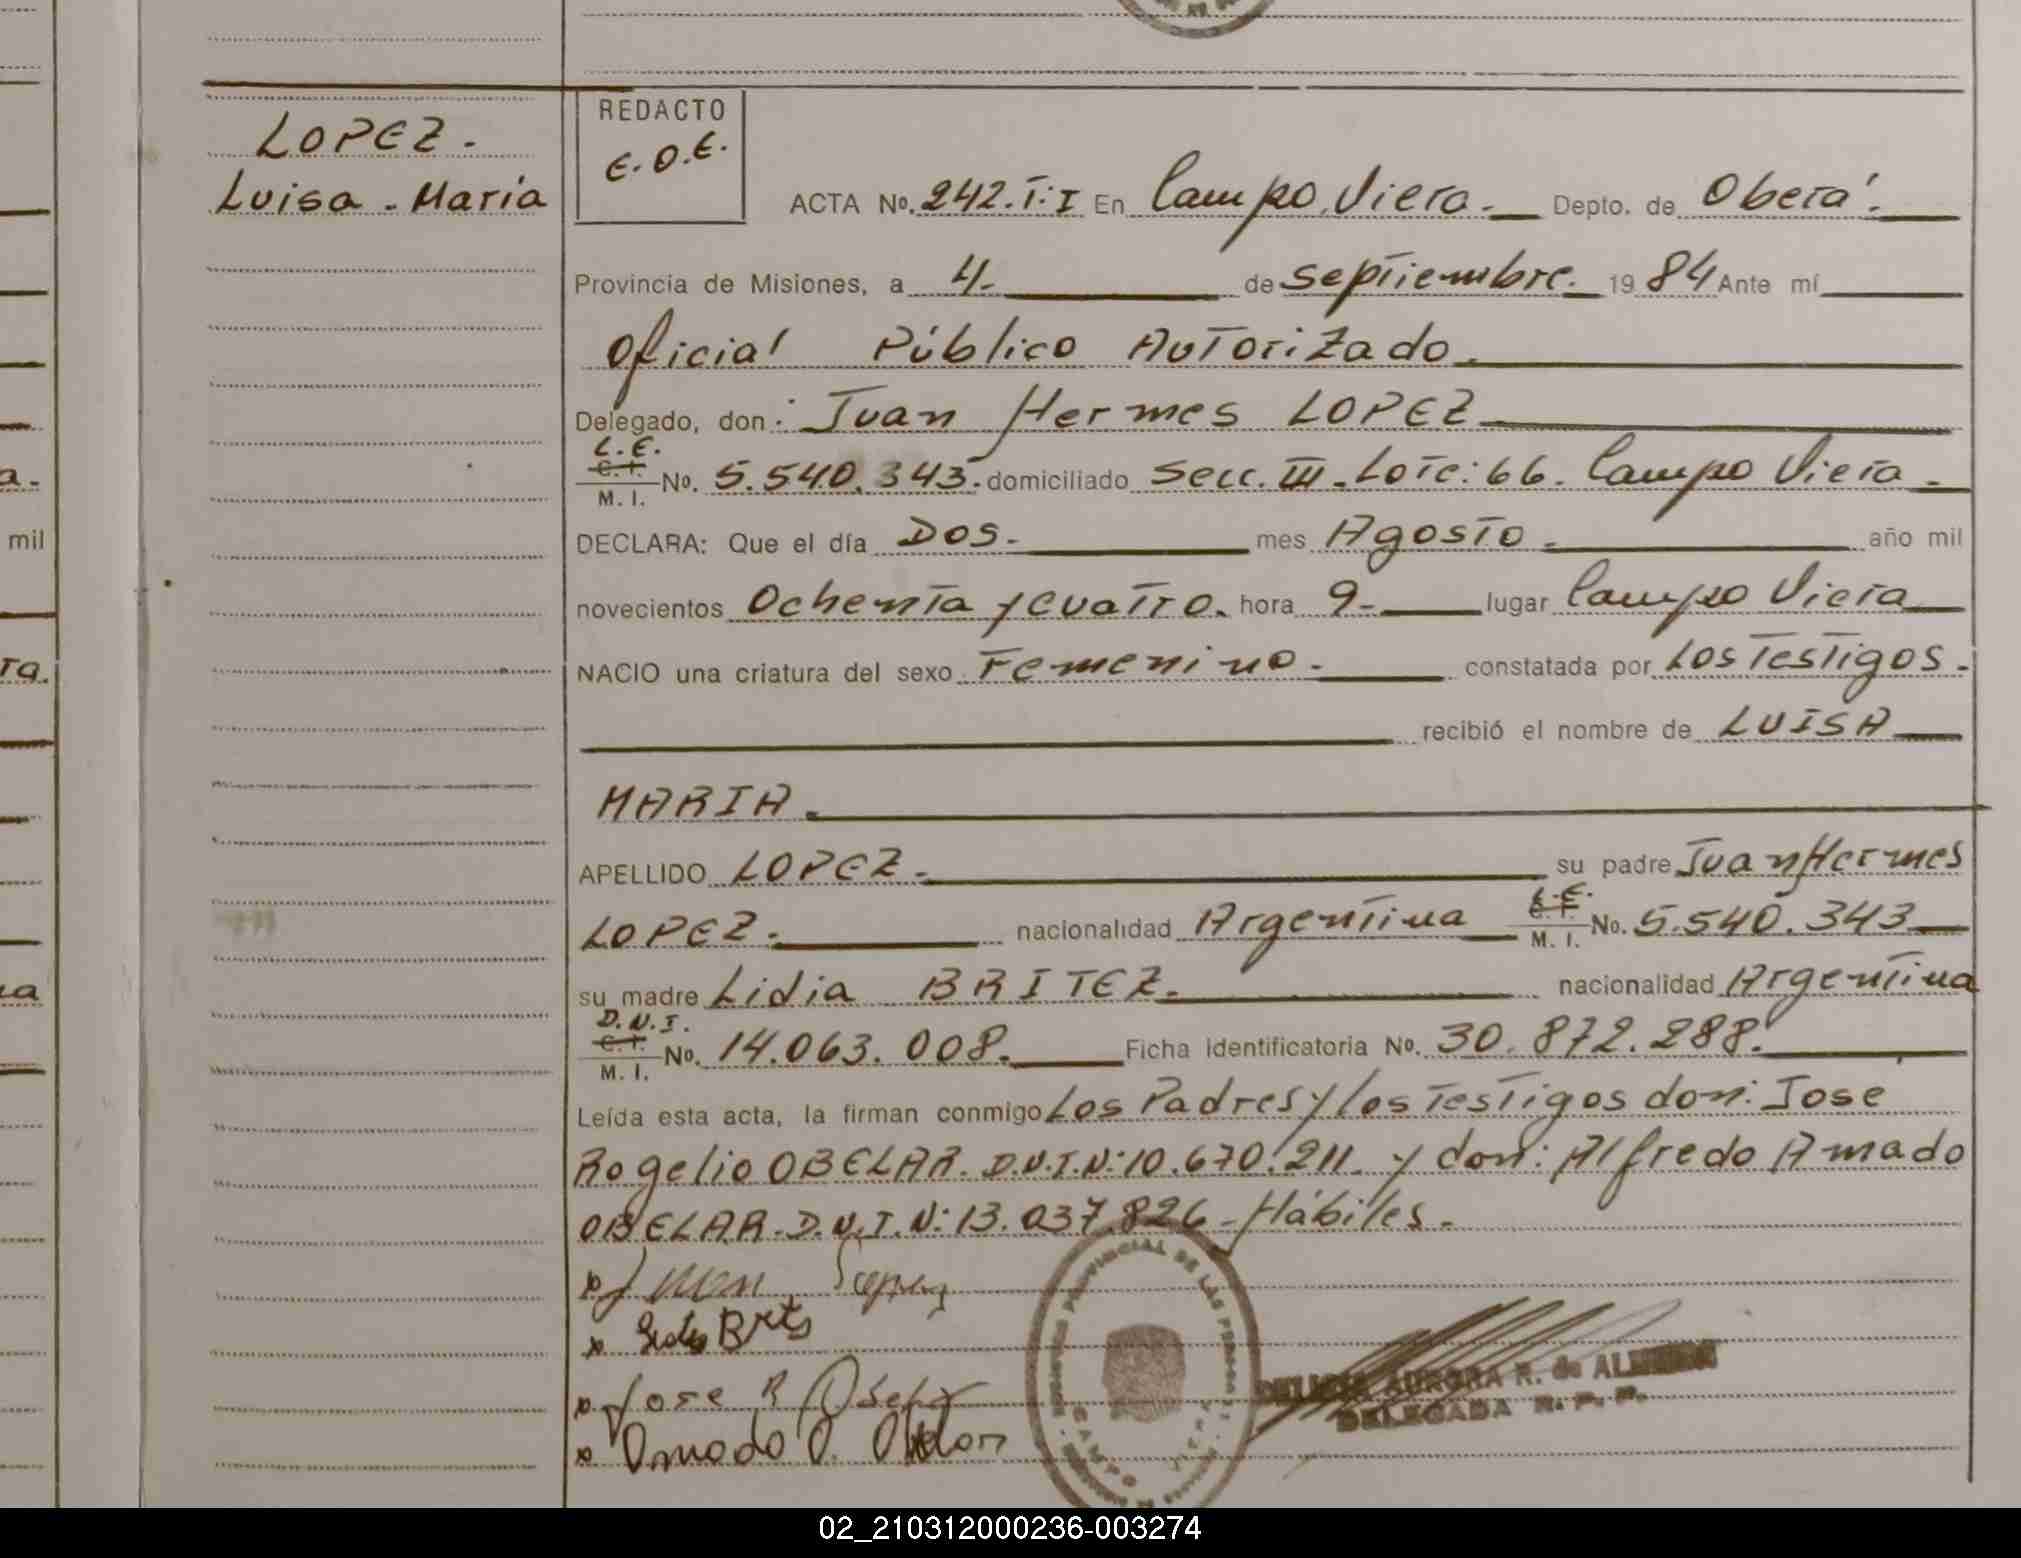 LOPEZ.
Luisa - Maria
REDACTO
E.O.E.
ACTA No. 242.T:I En Campo Viera. Depto. de Oberá.
Provincia de Misiones, a 4- de septiembre. 1984 Ante mí
Oficial Público Autorizado.
Delegado, don: Juan Hermes LOPEZ
L.E.
C. I.
M. I. No. 5.540.343. domiciliado Secc. III. Lote: 66. Campo Viera.
DECLARA: Que el día Dos. mes Agosto. año mil
novecientos Ochenta y cuatro. hora 9- lugar Campo Viera
NACIO una criatura del sexo Femenino. constatada por Los Testigos.
recibió el nombre de LUISA
MARIA.
APELLIDO LOPEZ. su padre Juan Hermes
LOPEZ. nacionalidad Argentina L.E. C. I. M. I. No. 5.540.343
su madre Lidia BRITEZ. nacionalidad Argentina
D.N.I.
C. I.
M. I. No. 14.063.008. Ficha Identificatoria No. 30.872.288.
Leída esta acta, la firman conmigo Los Padres y los Testigos don: Jose
Rogelio OBELAR. D.N.I.N: 10.670.211. y don: Alfredo Amado
OBELAR. D.N.I.N: 13.037.826 - Hábiles.
Juan
Jose R
Amado O.
PROVINCIAL DE LAS PERSONAS
CAMPO
AURORA R. de
DELEGADA R. P. P.
mil
02_210312000236-003274